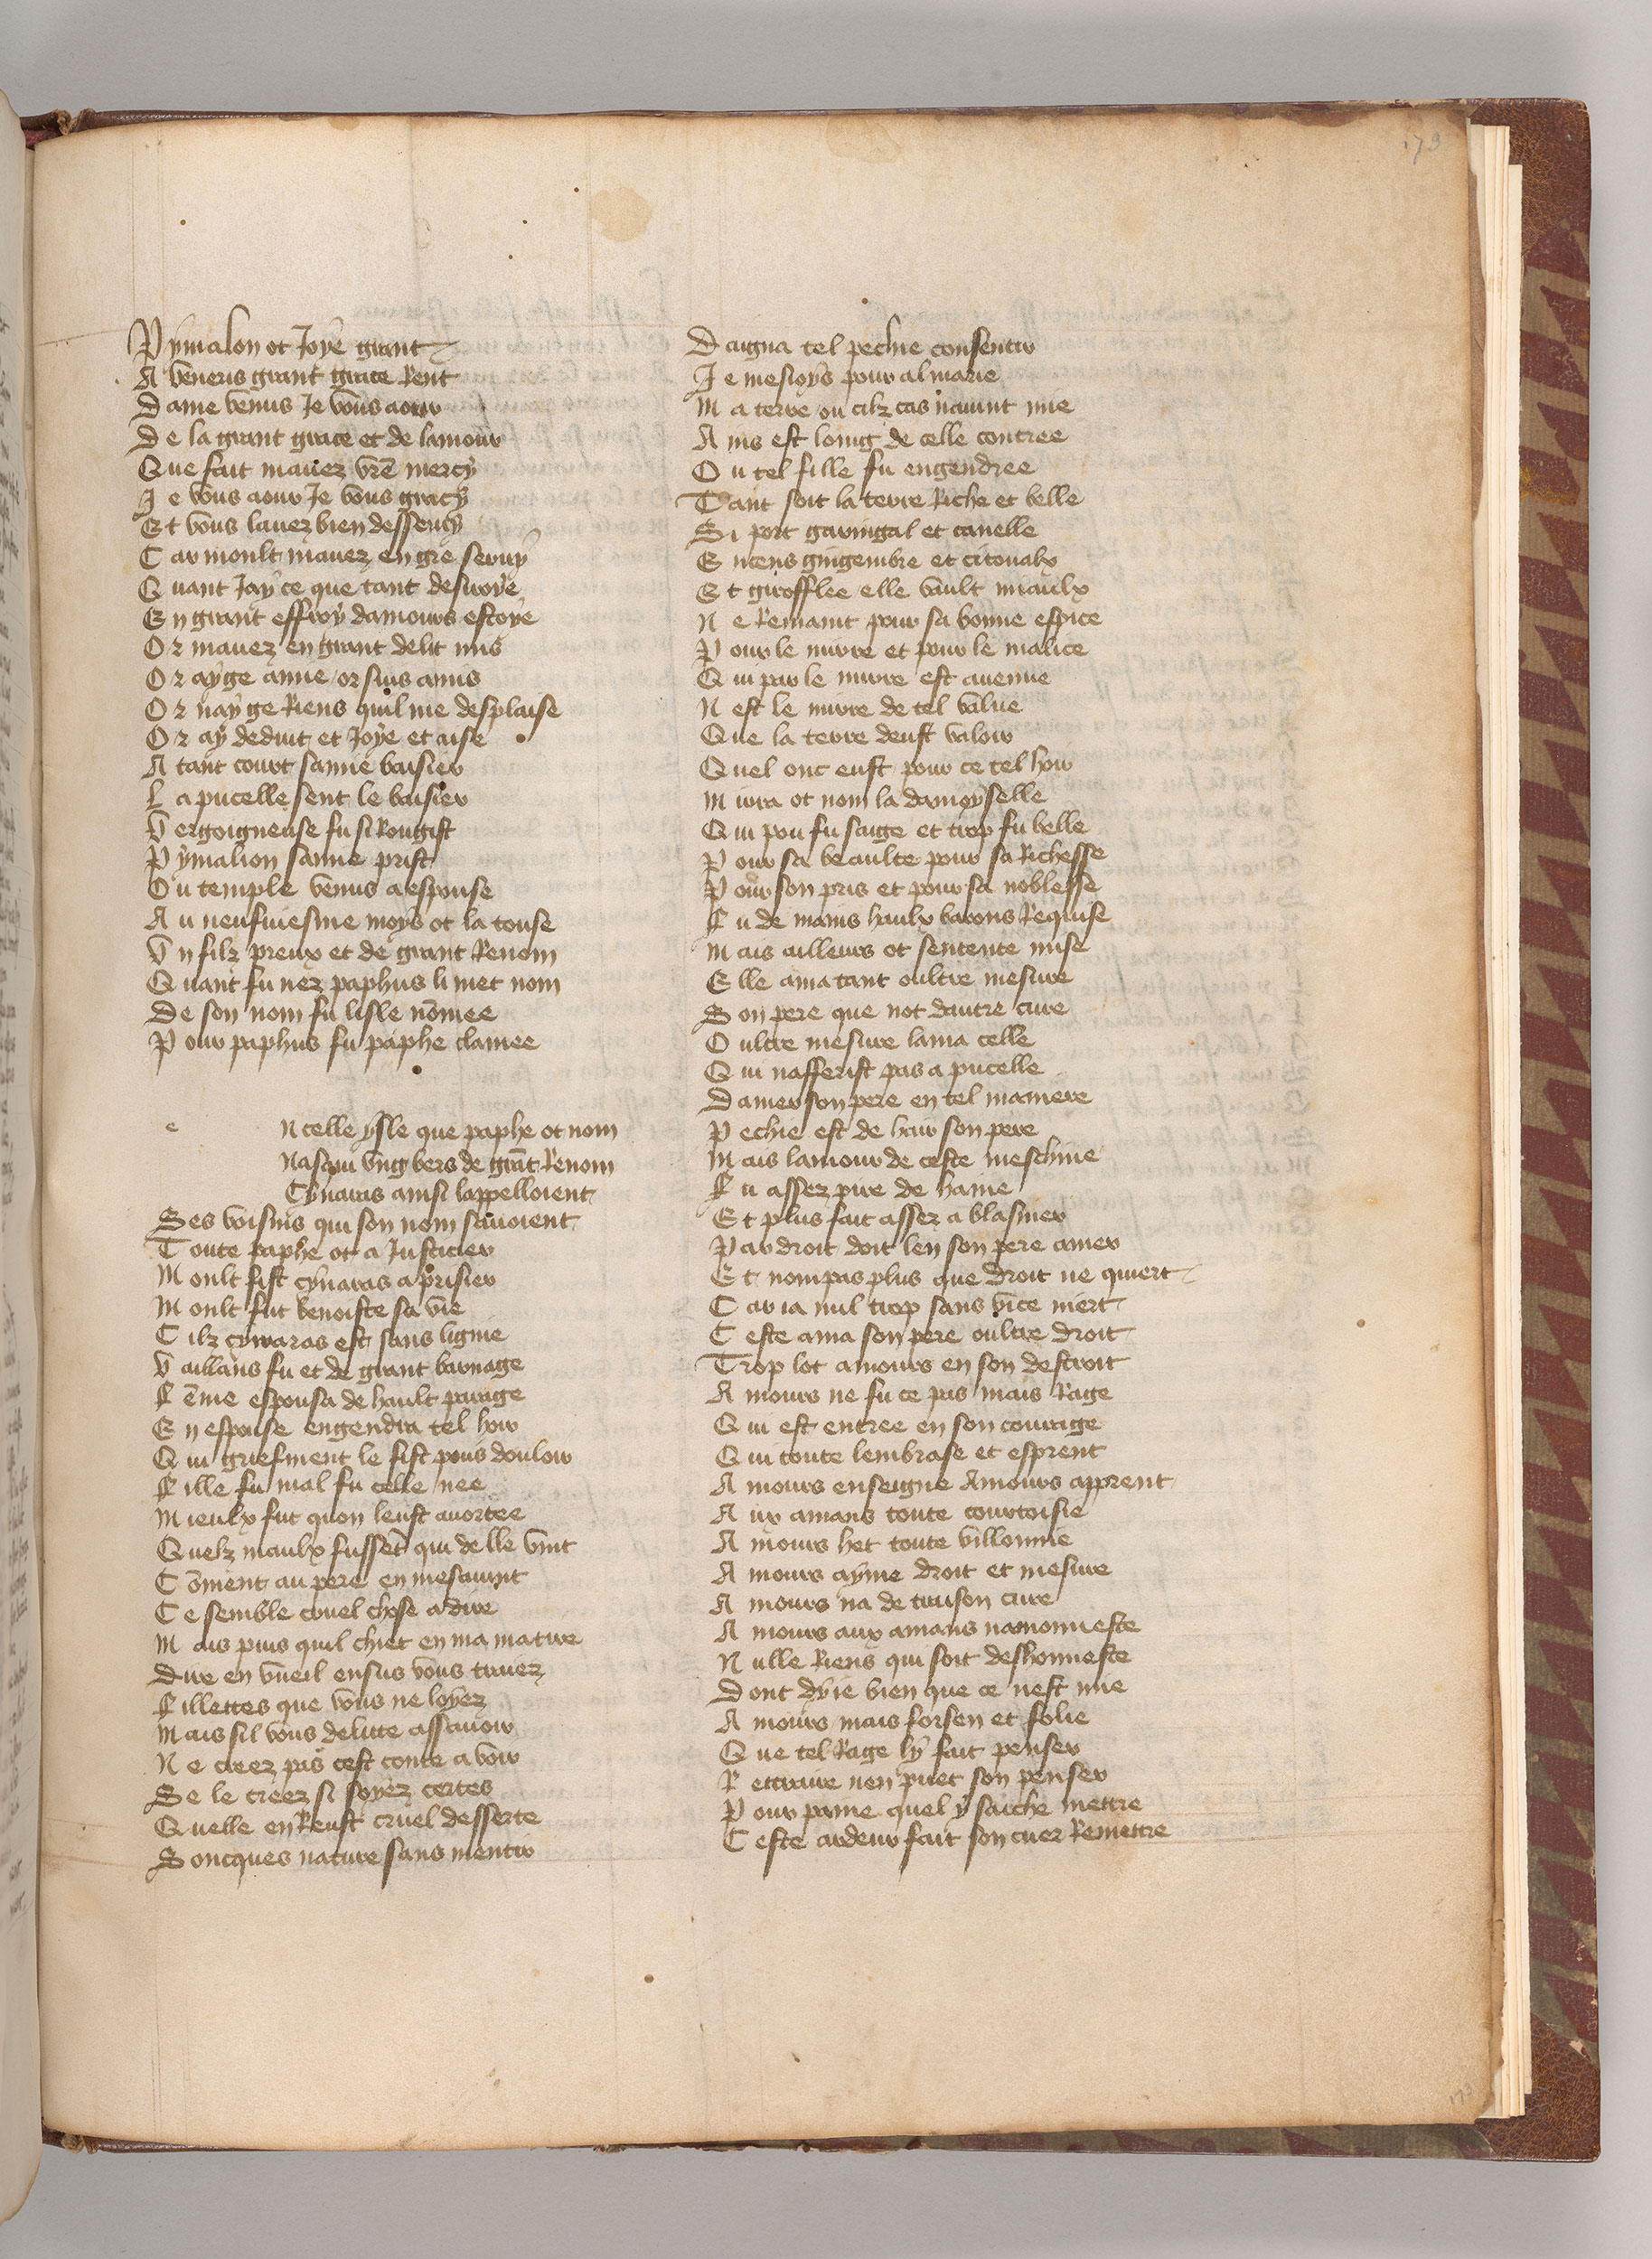 173
Pymalon ot Joye grant
A veneris grant grace Rent
Dame venus Je vous aour
De la grant grace et de lamour
Que fait mavez vre mercy
Je vous aour Je vous gracy
Et vous lavez bien desservy
Car moult mavez en gre servy
Quant Jay ce que tant desiroye
En grant effroy damours estoye
Or mavez en grant delit mis
Or ayge amie or suis amis
Or nay ge Riens quil me desplaise
Or ay deduit et Joye et aise
A tant court samie baisier
La pucelle sent le baisier
Vergoigneuse fu si Rougist
Pymalion samie prist
Ou temple venus a espouse
Au neufviesme moys ot la touse
Un filz preux et de grant Renom
Quant fu nez paphus li met nom
De son nom fu lisle nomee
Pour paphus fu paphe clamee
e Ncelle ysle que paphe ot nom
Nasqui ung bers de grat Renom
Cynaras ainsi lappelloient
Ses voisins qui son nom savoient
Toute paphe ot a Justicier
Moult fist cynaras a prisier
Moult fut benoiste sa vie
Cilz cynaras est sans lignie
Vaillans fu et de grant barnage
Feme espousa de hault parage
En espouse engendra tel hoir
Qui griefment le fist puis douloir
Fille fu mal fu celle nee
Mieulx fut quon leust avortee
Quelz maulx fusset qui delle vint
Coment au pere en mesavint
Ce semble cruel chose a dire
Mais puis quil chiet en ma matire
Dire en vueil ensus vous traiez
Fillettes que vous ne loyez
Mais sil vous delitte assavoir
Ne creez pas cest conte a voir
Se le creez si soyez certes
Quelle en Reust cruel desserte
Soncques nature sans mentir
Daigna tel pechie consentir
Je mesioys pour almarie
Ma terre ou cilz cas navint mie
Ains est loing de celle contree
Ou tel fille fu engendree
Tant soit la terre Riche et belle
Si port garingal et canelle
Encens gingembre et citoualx
Et girofflee elle vault miaulx
Ne Remaint pour sa bonne espice
Pour le mirre et pour le malice
Qui par le mirre est avenue
Nest le mirre de tel value
Que la terre deust valoir
Quel onc eust pour ce tel hoir
Mirra ot nom la damoyselle
Qui pou fu saige et trop fu belle
Pour sa beaulte pour sa Richesse
Pour son pris et pour sa noblesse
Fu de mains haulx barons Requise
Mais ailleurs ot sentente mise
Elle ama tant oultre mesure
Son pere que not dautre cure
Oultre mesure lama celle
Qui nafferist pas a pucelle
Damer son pere en tel maniere
Pechie est de hair son pere
Mais lamour de ceste meschine
Fu assez pire de haine
Et plus fait assez a blasmer
Par droit doit len son pere amer
Et nompas plus que droit ne quiert
Car ia nul trop sans vice niert
Ceste ama son pere oultre droit
Trop lot amours en son destroit
Amours ne fu ce pas mais Rage
Qui est entree en son courage
Qui toute lembrase et esprent
Amours enseigne Amours apprent
Aux amans toute courtoisie
Amours het toute villonnie
Amours ayme droit et mesure
Amours na de traison cure
Amours aux amans namonneste
Nulle Riens qui soit deshonneste
Dont dyie bien que ce nest mie
Amours mais forsen et folie
Que tel Rage ly fait penser
Retraire nen puet son penser
Pour paine quel y saiche mettre
Ceste ardeur fait son cuer Remettre
173